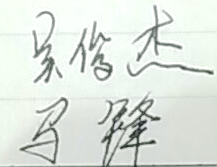 吴俊杰
马锋